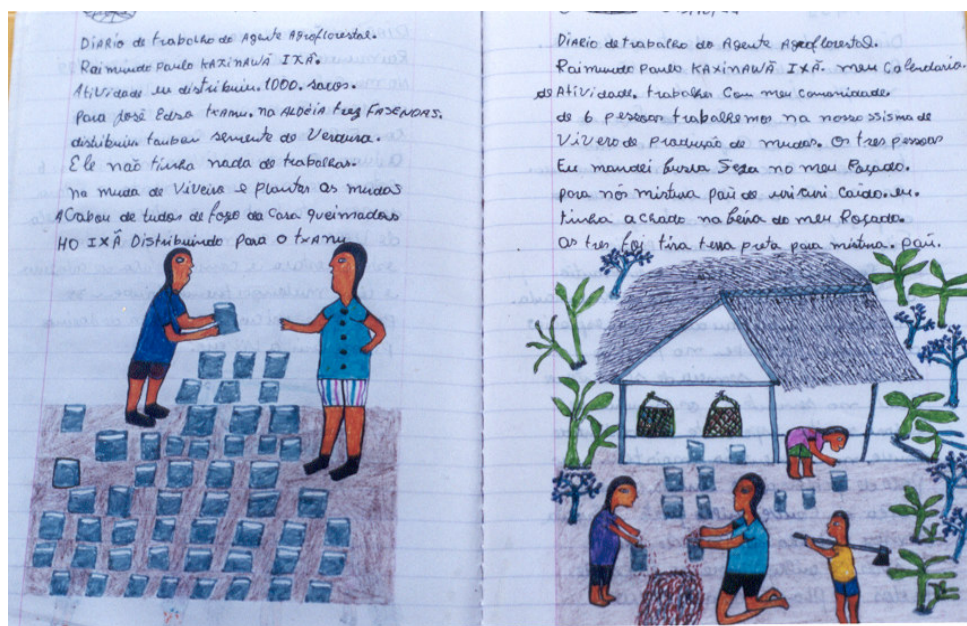 DiARio de trabolho do Agente Agroflorestal.
Raimundo Paulo KAXiNAWÁ IXÃ.
Atividade eu distribuiu. 1000. sacos.
Para José Edso txanu. na ALDEiA treis FASENDAS.
distribuiu taubau semente de Verdura.
Ele não tinha nada de trabalhos.
na muda de Viveiro e plantar as mudas
Acabou de tudos de fogo da Casa queimadous
HO IXÃ Distribuindo para o txanu
Diario de trabalho do Agente Agroflorestal.
Raimundo Paulo KAXiNAWÁ IXÃ. meu Calendario.
do Atividade. trabalhei Com meu comunidade
de 6 pessoas trabalhemos na nosso ssisma de
Vivero de Produção de mudas. Os tres pessoas
Eu mandei busca no meu Roçado.
para nós mistura paú de caido. eu.
tinha achado na beira do meu Roçado.
Os tres foi tira terra preta para mistura. paú.